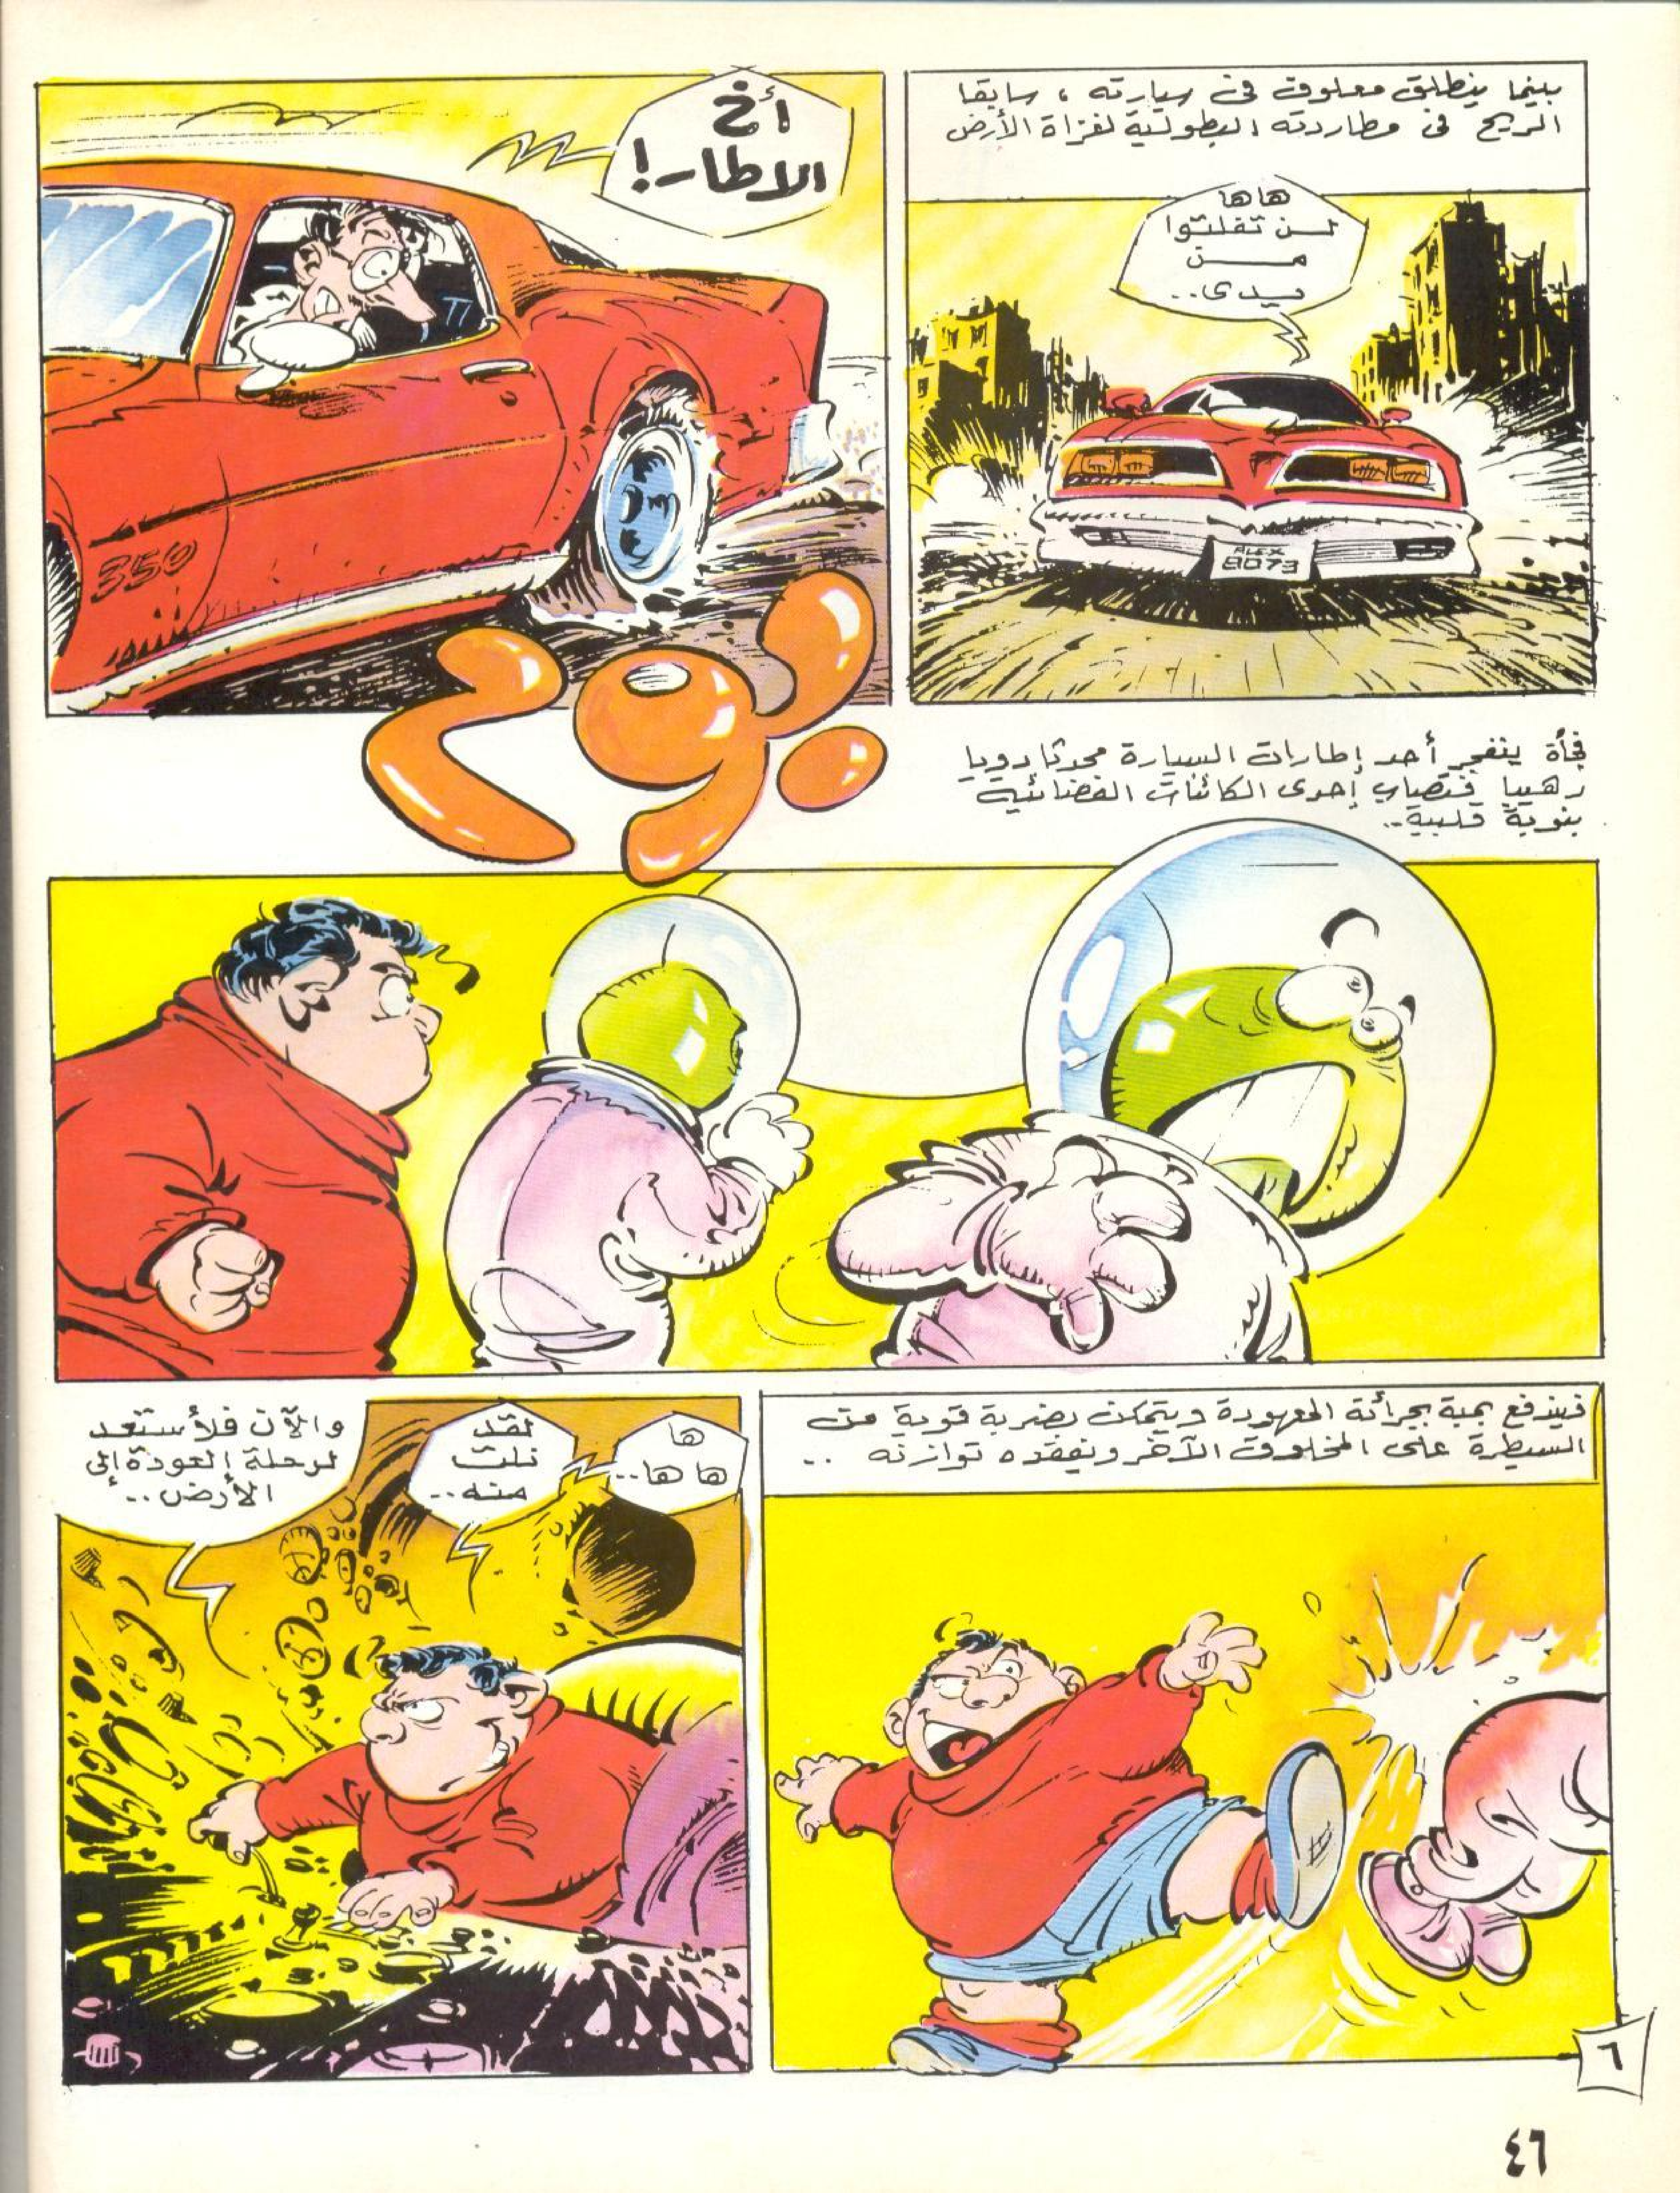 بينما ينطلق معلوف في سيارته ، سابقا
الريح في مطاردته البطولية لغزاة الأرض
ها ها
لن تفلتوا
من
يدى..
ALEX
8073
أخ
الإطار!
350
بوم
فجأة ينفجر أحد إطارات السيارة محدثا دويا
رهيبا فتصاب إحدى الكائنات الفضائية
بنوبة قلبية..
فيندفع بمبة بجرأته المعهودة ويتمكن بضربة قوية من
السيطرة على المخلوق الآخر ويفقده توازنه ..
ها
ها ها..
لقد
نلت
منه..
والآن فلأستعد
لرحلة العودة إلى
الأرض..
٦
٤٦